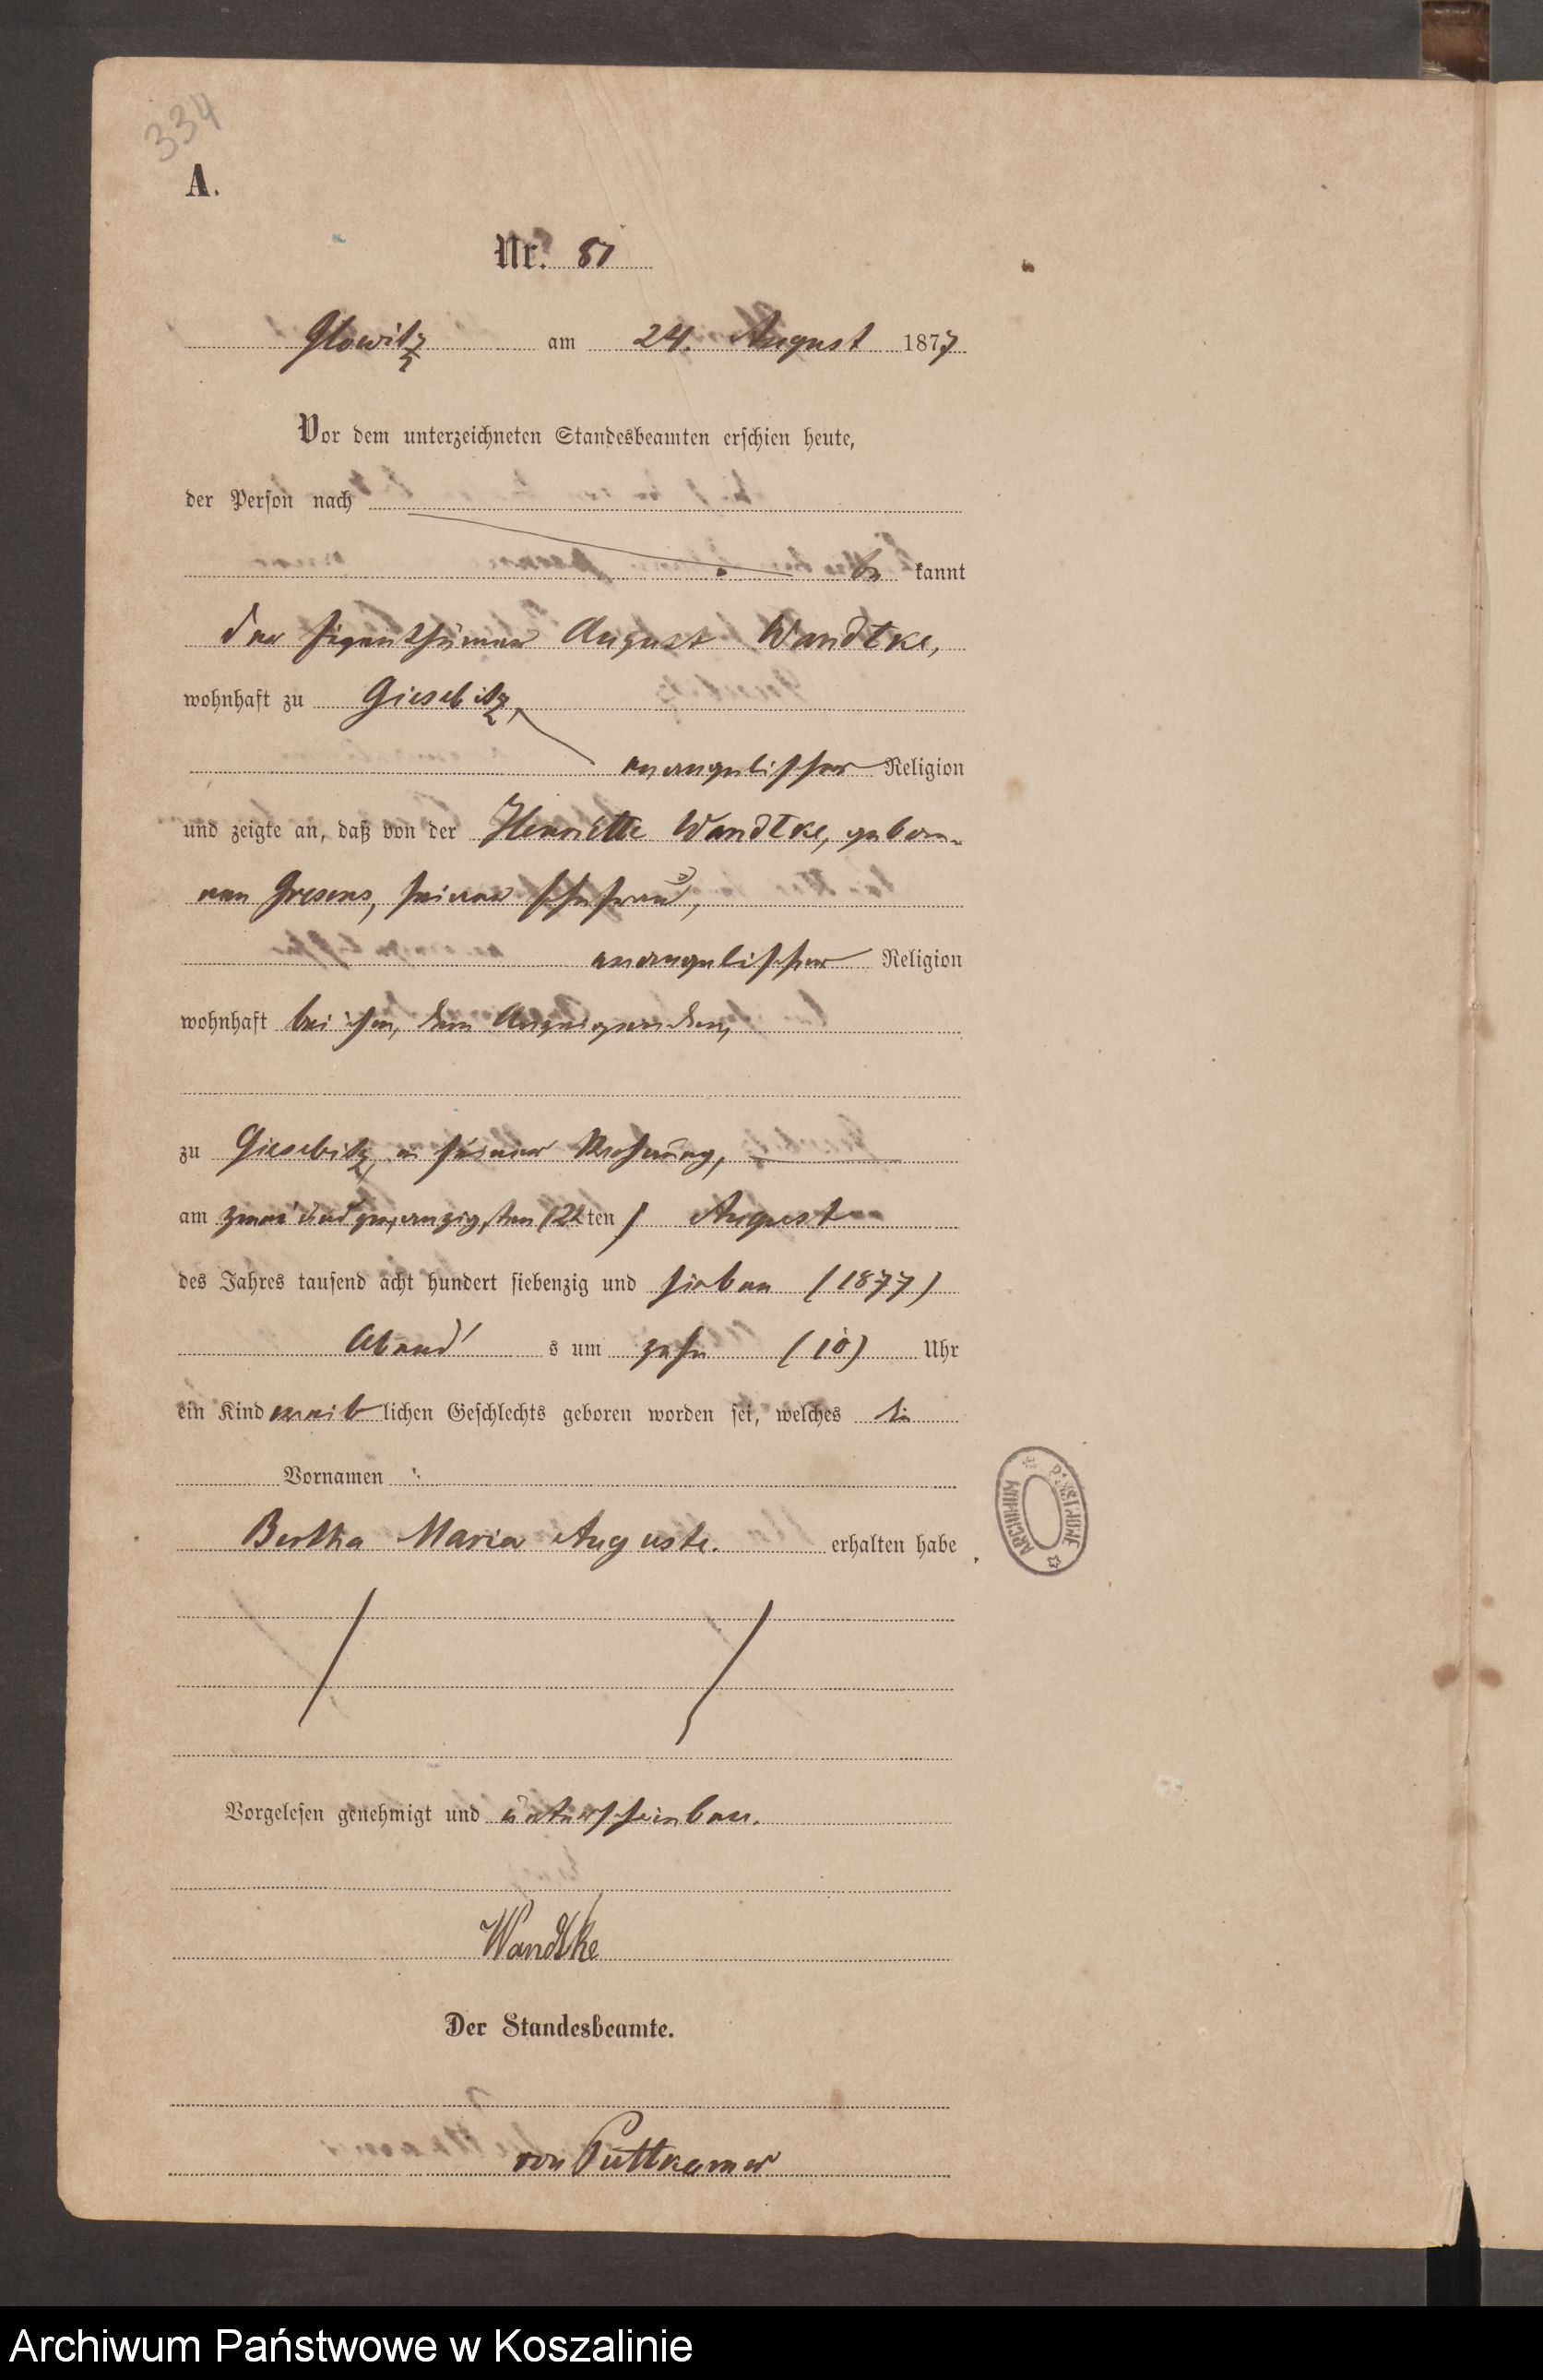 334
A.
Nr. 81
Glowitz am 24. August 1877
Vor dem unterzeichneten Standesbeamten erschien heute,
der Person nach
be kannt
der Eigenthümer August Wandtke,
wohnhaft zu Giesebitz,
evangelischer Religion
und zeigte an, daß von der Henriette Wandtke, gebore-
nen Gresens, seiner Ehefrau,
evangelischer Religion
wohnhaft bei ihm, dem Anzeigenden,
zu Giesebitz in seiner Wohnung,
am zwei und zwanzigsten (22ten) August
des Jahres tausend acht hundert siebenzig und sieben (1877)
Abend s um zehn (10) Uhr
ein Kind weib lichen Geschlechts geboren worden sei, welches die
Vornamen :
Bertha Maria Auguste. erhalten habe
Vorgelesen genehmigt und unterschrieben.
Wandtke
Der Standesbeamte.
von Puttkamer
ARCHIWUM PAŃSTWOWE
Archiwum Państwowe w Koszalinie